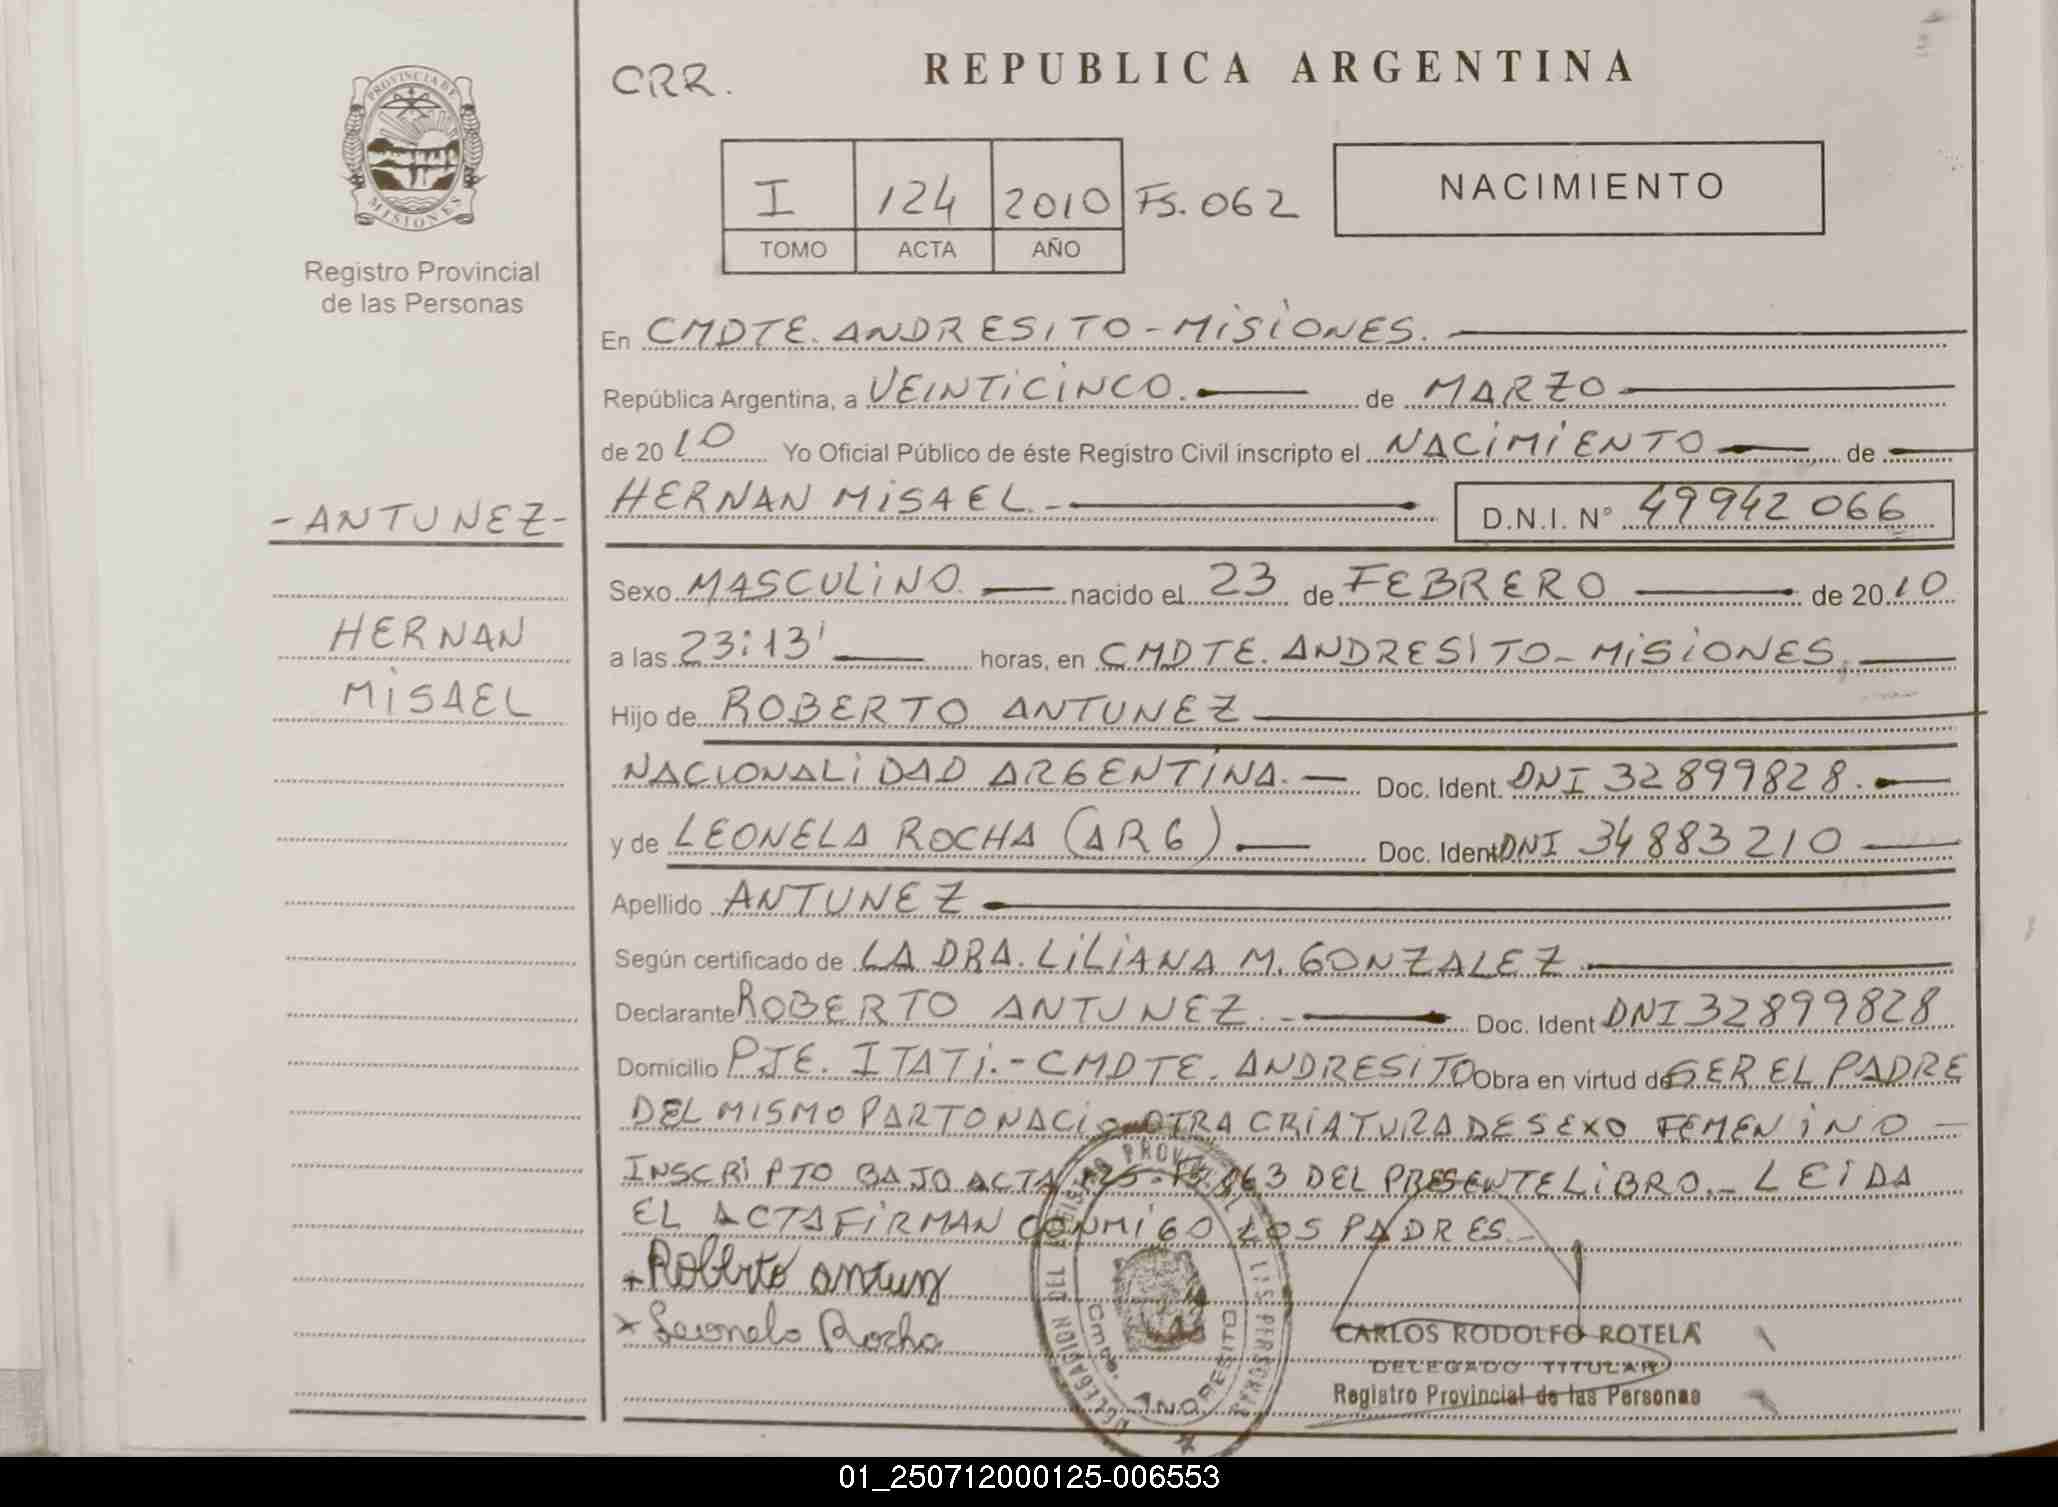 PROVINCIA DE
MISIONES
Registro Provincial
de las Personas
-ANTUNEZ-
HERNAN
MISAEL
CRR.
REPUBLICA ARGENTINA
I 124 2010 FS. 062
TOMO ACTA AÑO
NACIMIENTO
En CMDTE. ANDRESITO - MISIONES.
República Argentina, a VEINTICINCO. de MARZO
de 2010 Yo Oficial Público de éste Registro Civil inscripto el NACIMIENTO de
HERNAN MISAEL.- D.N.I. N° 49942066
Sexo MASCULINO. nacido el 23 de FEBRERO de 2010
a las 23:13' horas, en CMDTE. ANDRESITO - MISIONES.
Hijo de ROBERTO ANTUNEZ
NACIONALIDAD ARGENTINA. Doc. Ident. DNI 32899828.
y de LEONELA ROCHA (ARG) Doc. Ident DNI 34883210
Apellido ANTUNEZ
Según certificado de LA DRA. LILIANA M. GONZALEZ
Declarante ROBERTO ANTUNEZ.- Doc. Ident DNI 32899828
Domicilio PJE. ITATI.- CMDTE. ANDRESITO Obra en virtud de SER EL PADRE
DEL MISMO PARTO NACIO OTRA CRIATURA DE SEXO FEMENINO -
INSCRIPTO BAJO ACTA 125 - FS. 063 DEL PRESENTE LIBRO.- LEIDA
EL ACTA FIRMAN CONMIGO LOS PADRES.-
+ Roberto antunz
x Leonela Rocha
DELEGACION DEL REGISTRO PROVINCIAL LAS PERSONAS
Cmte. AND RESITO
CARLOS RODOLFO ROTELA
DELEGADO TITULAR
Registro Provincial de las Personas
01_250712000125-006553